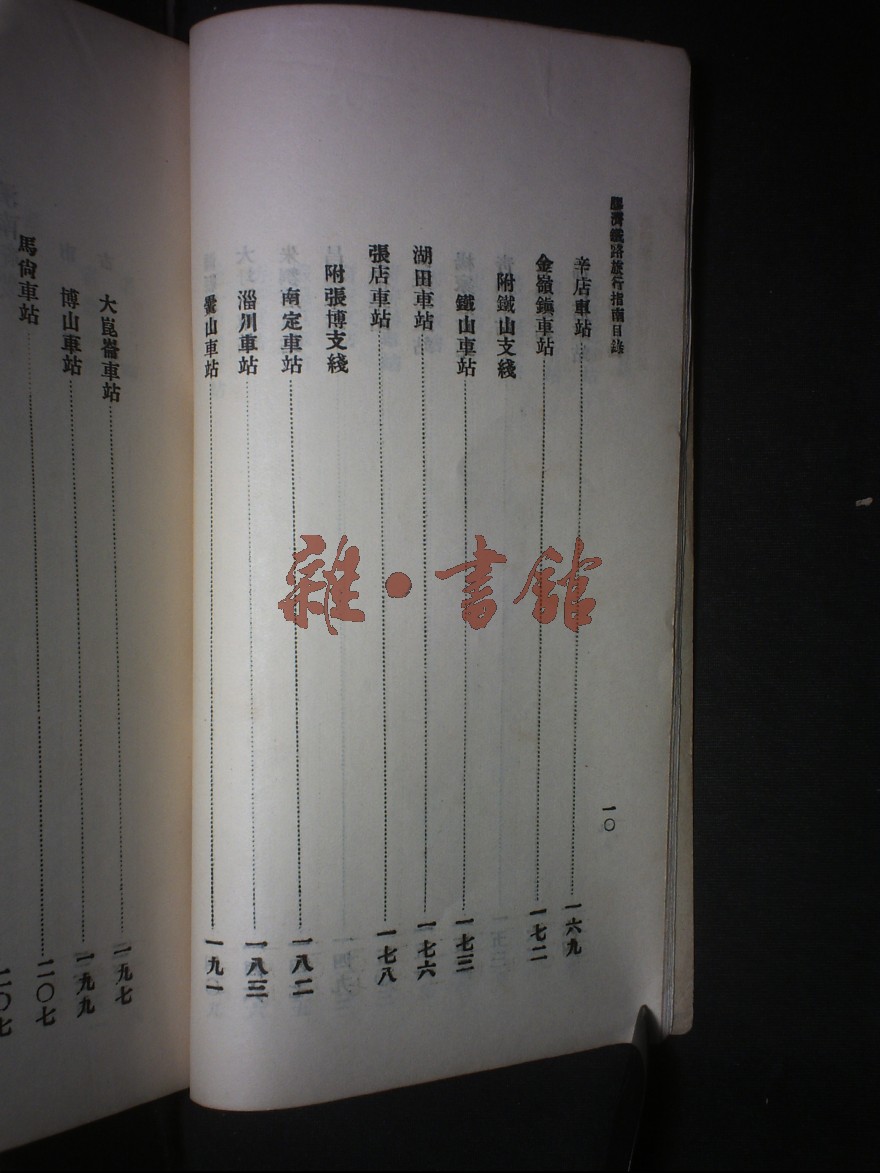 膠濟鐵路旅行指南目錄
一〇
辛店車站 一六九
金嶺鎮車站 一七二
附鐵山支綫
鐵山車站 一七三
湖田車站 一七六
張店車站 一七八
附張博支綫
南定車站 一八二
淄川車站 一八三
黌山車站 一九一
大崑崙車站 一九七
博山車站 一九九
馬尙車站 二〇七
二〇七
雜·書館